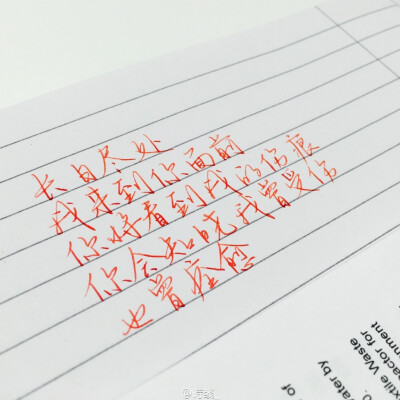 长日尽处
我来到你面前
你将看到我的伤痕
你会知晓我曾受伤
也曾痊愈
nment
actor for
xtile Waste
ater by
of